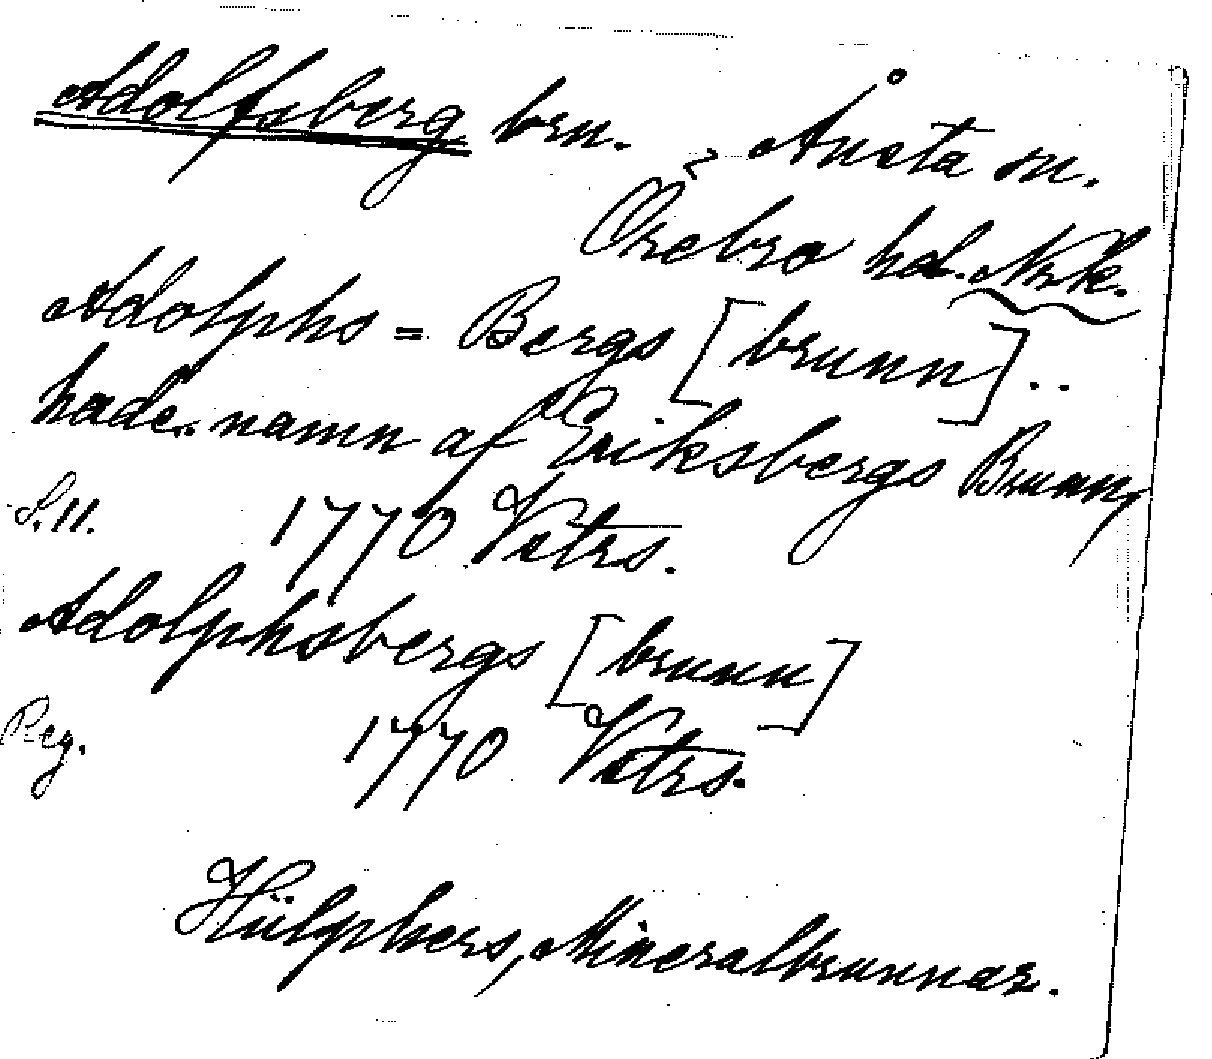 Adolfsberg brn. Ånsta sn.
Örebro hd. Nrk.
Adolphs = Bergs [brunn]..
hade.. namn af Eriksbergs Brunn,
S. 11. 1770 Vstrs.
Adolphsbergs [brunn]
Reg. 1770 Vstrs.
Hülphers, Mineralbrunnar.